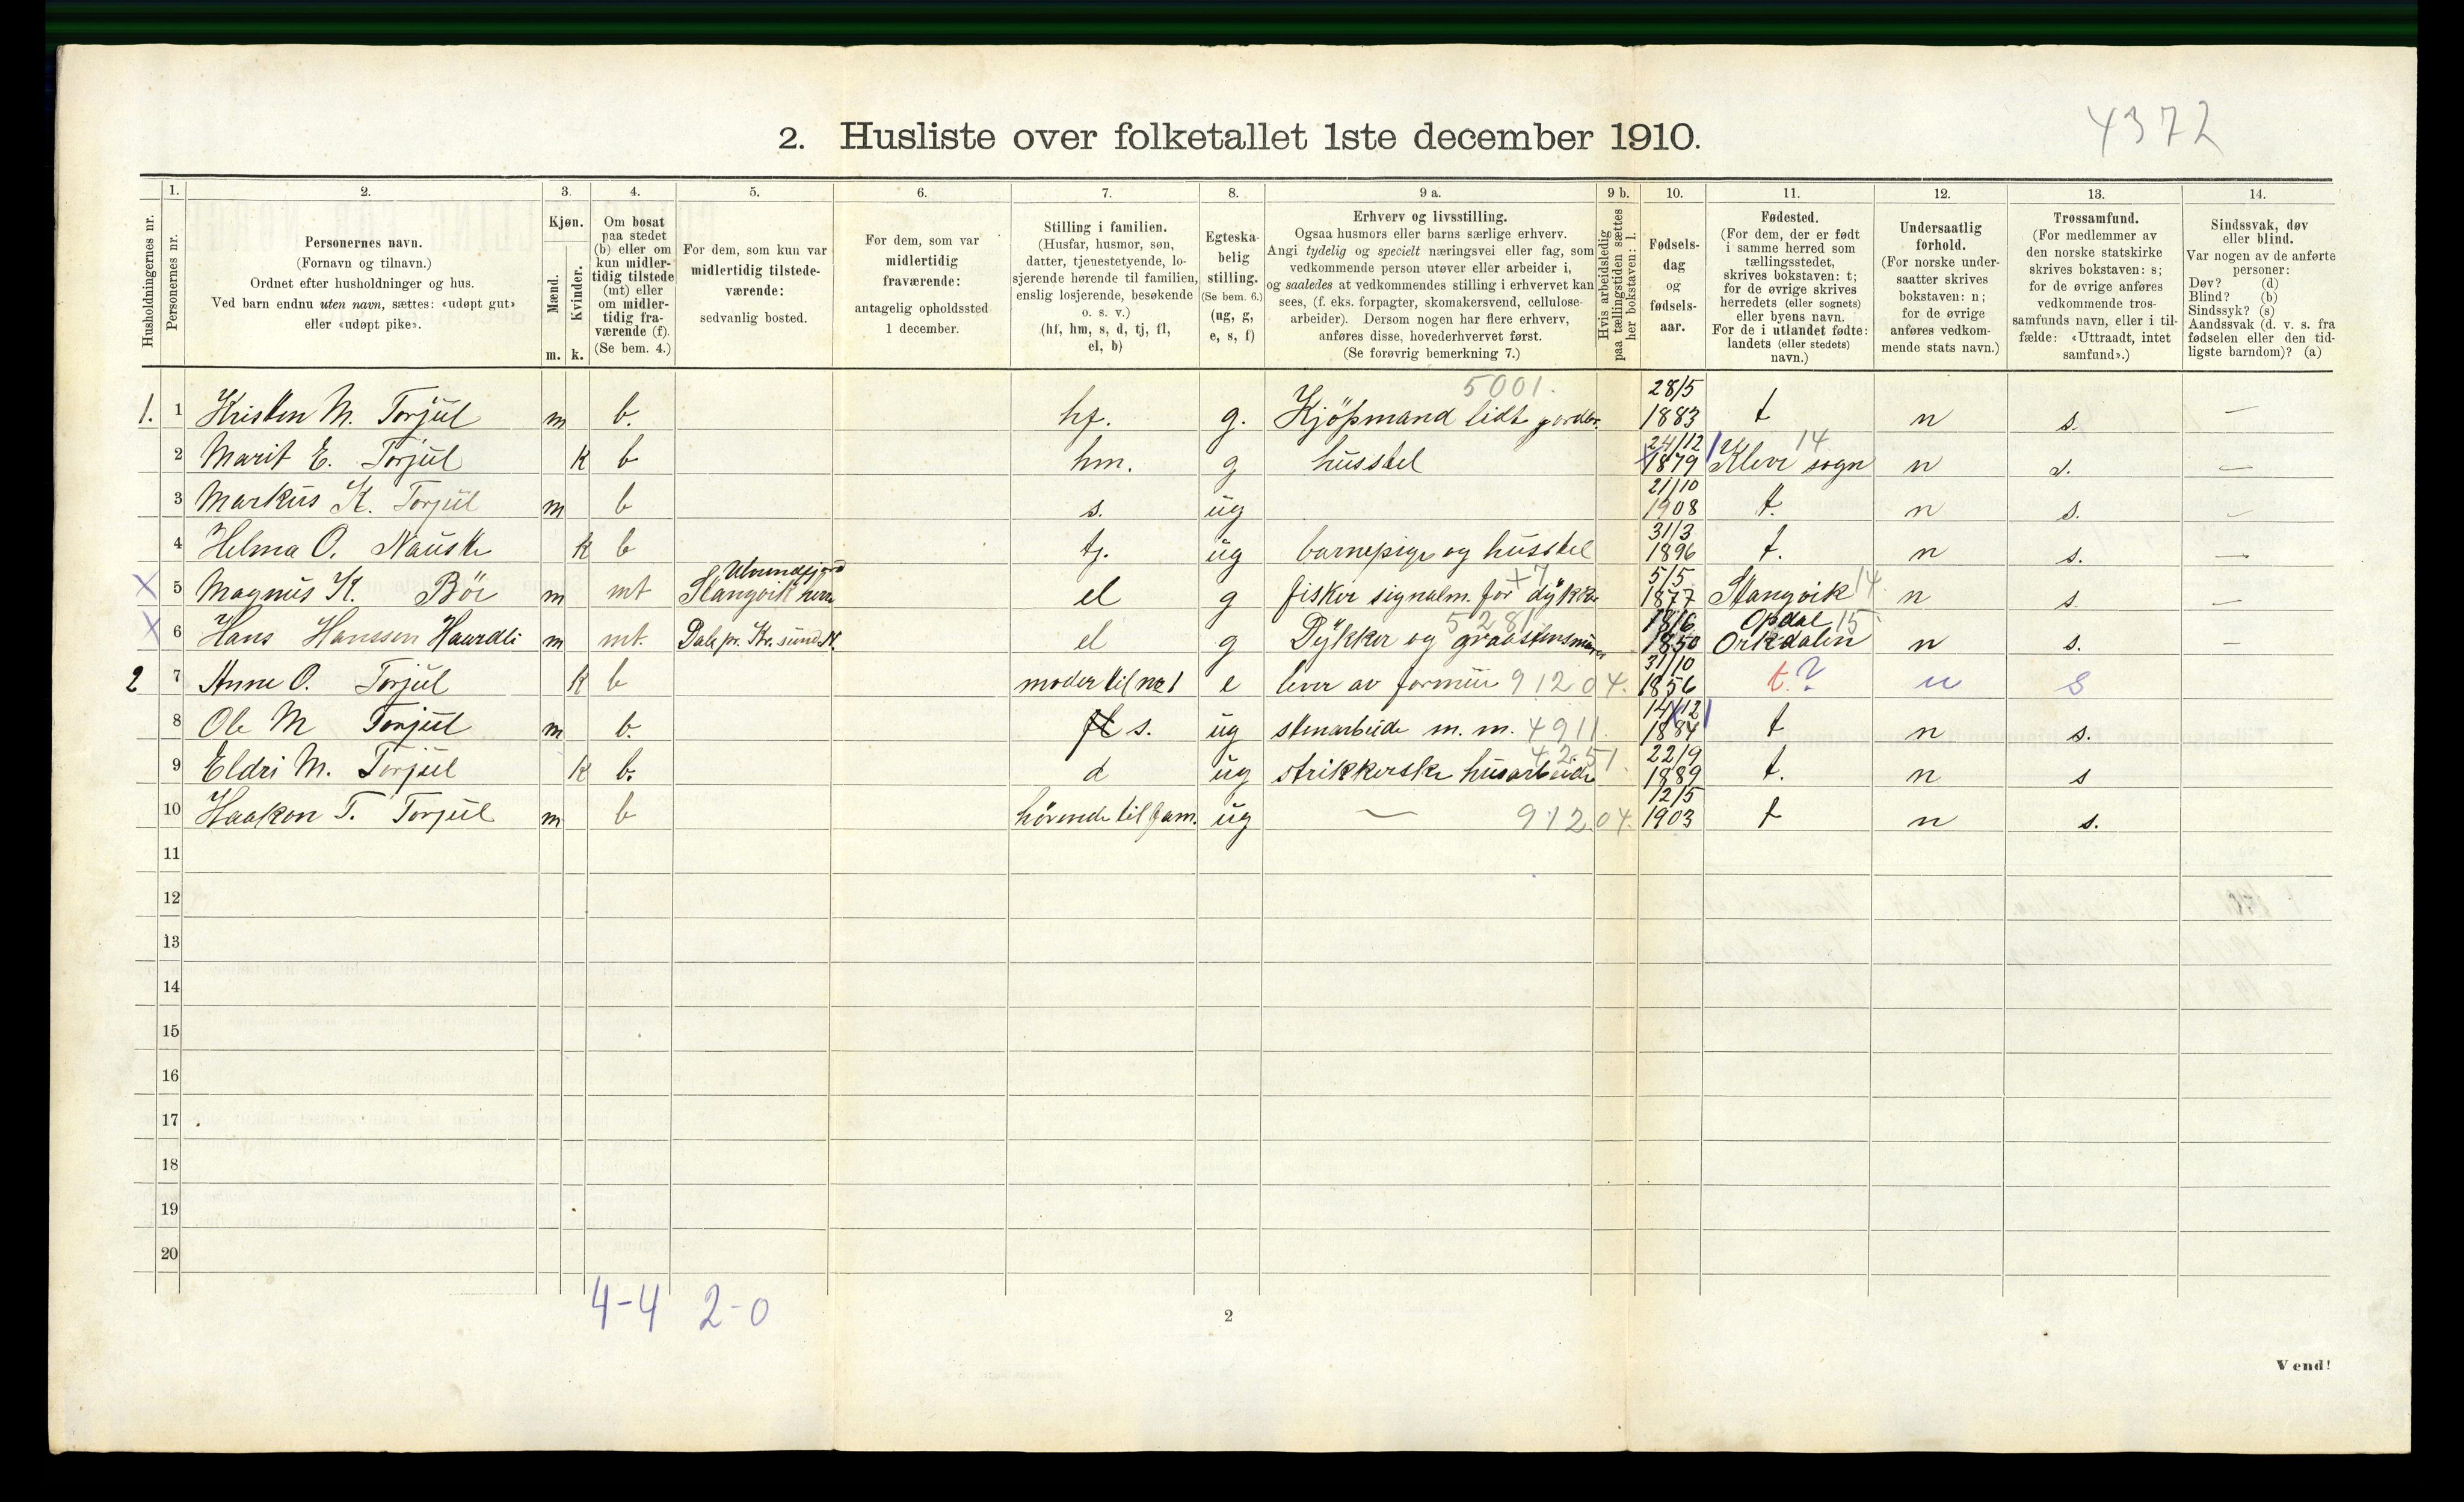 4372
2. Husliste over folketallet 1ste december 1910.
Husholdningernes nr.
1.
Personernes nr.
2.
Personernes navn.
(Fornavn og tilnavn.)
Ordnet efter husholdninger og hus.
Ved barn endnu uten navn, sættes: «udøpt gut»
eller «udøpt pike».
3.
Kjøn.
Mænd.
Kvinder.
m. k.
4.
Om bosat
paa stedet
(b) eller om
kun midler-
tidig tilstede
(mt) eller
om midler-
tidig fra-
værende (f).
(Se bem. 4.)
5.
For dem, som kun var
midlertidig tilstede-
værende:
sedvanlig bosted.
6.
For dem, som var
midlertidig
fraværende:
antagelig opholdssted
1 december.
7.
Stilling i familien.
(Husfar, husmor, søn,
datter, tjenestetyende, lo-
sjerende hørende til familien,
enslig losjerende, besøkende
o. s. v.)
(hf, hm, s, d, tj, fl,
el, b)
8.
Egteska-
belig
stilling.
(Se bem. 6.)
(ug, g,
e, s, f)
9 a.
Erhverv og livsstilling.
Ogsaa husmors eller barns særlige erhverv.
Angi tydelig og specielt næringsvei eller fag, som
vedkommende person utøver eller arbeider i,
og saaledes at vedkommendes stilling i erhvervet kan
sees, (f. eks. forpagter, skomakersvend, cellulose-
arbeider). Dersom nogen har flere erhverv,
anføres disse, hovederhvervet først.
(Se forøvrig bemerkning 7.)
9 b.
Hvis arbeidsledig
paa tællingstiden sættes
her bokstaven: l.
10.
Fødsels-
dag
og
fødsels-
aar.
11.
Fødested.
(For dem, der er født
i samme herred som
tællingsstedet,
skrives bokstaven: t;
for de øvrige skrives
herredets (eller sognets)
eller byens navn.
For de i utlandet fødte:
landets (eller stedets)
navn.)
12.
Undersaatlig
forhold.
(For norske under-
saatter skrives
bokstaven: n;
for de øvrige
anføres vedkom-
mende stats navn.)
13.
Trossamfund.
(For medlemmer av
den norske statskirke
skrives bokstaven: s;
for de øvrige anføres
vedkommende tros-
samfunds navn, eller i til-
fælde: «Uttraadt, intet
samfund».)
14.
Sindssvak, døv
eller blind.
Var nogen av de anførte
personer:
Døv? (d)
Blind? (b)
Sindssyk? (s)
Aandssvak (d. v. s. fra
fødselen eller den tid-
ligste barndom)? (a)
5001. 28/5
1. 1 Kristen M. Torjül m b. hf. g. Kjöpmand lidt jordbr. 1883 t n s. —
24/12 14
2 Marit E. Torjül k b hm. g husstel 1879 Kleve sogn n s. —
21/10
3 Markus K. Torjül m b s. ug 1908 t. n s. —
31/3
4 Helma O. Nauste k b tj. ug barnepige og husstel 1896 t. n s. —
Ulvundfjord +7 5/5
X 5 Magnus K. Böe m mt Stangvik herr el g fisker signalm. for dykker 1877 Stangvik 14 n s. —
5281 18/6 Opdal 15
X 6 Hans Hanssen Haurdli m mt. Dale pr. Kr.sund N. el g Dykker og graastensmurer 1850 Orkdalen n s. —
31/10
2 7 Anne O. Torjül k b moder til no 1 e lever av formüe 91204. 1856 t.? n s
14/12
8 Ole M Torjül m b. fl s. ug stenarbeide m. m. 4911. 1884 t n s.
4251. 22/9
9 Eldri M. Torjül k b. d ug strikkerske husarbeide 1889 t. n s
12/5
10 Haakon T. Torjül m b hörende til fam. ug — 91204. 1903 t n s.
11
12
13
14
15
16
17
18
19
20
4-4 2-0
2
Vend!